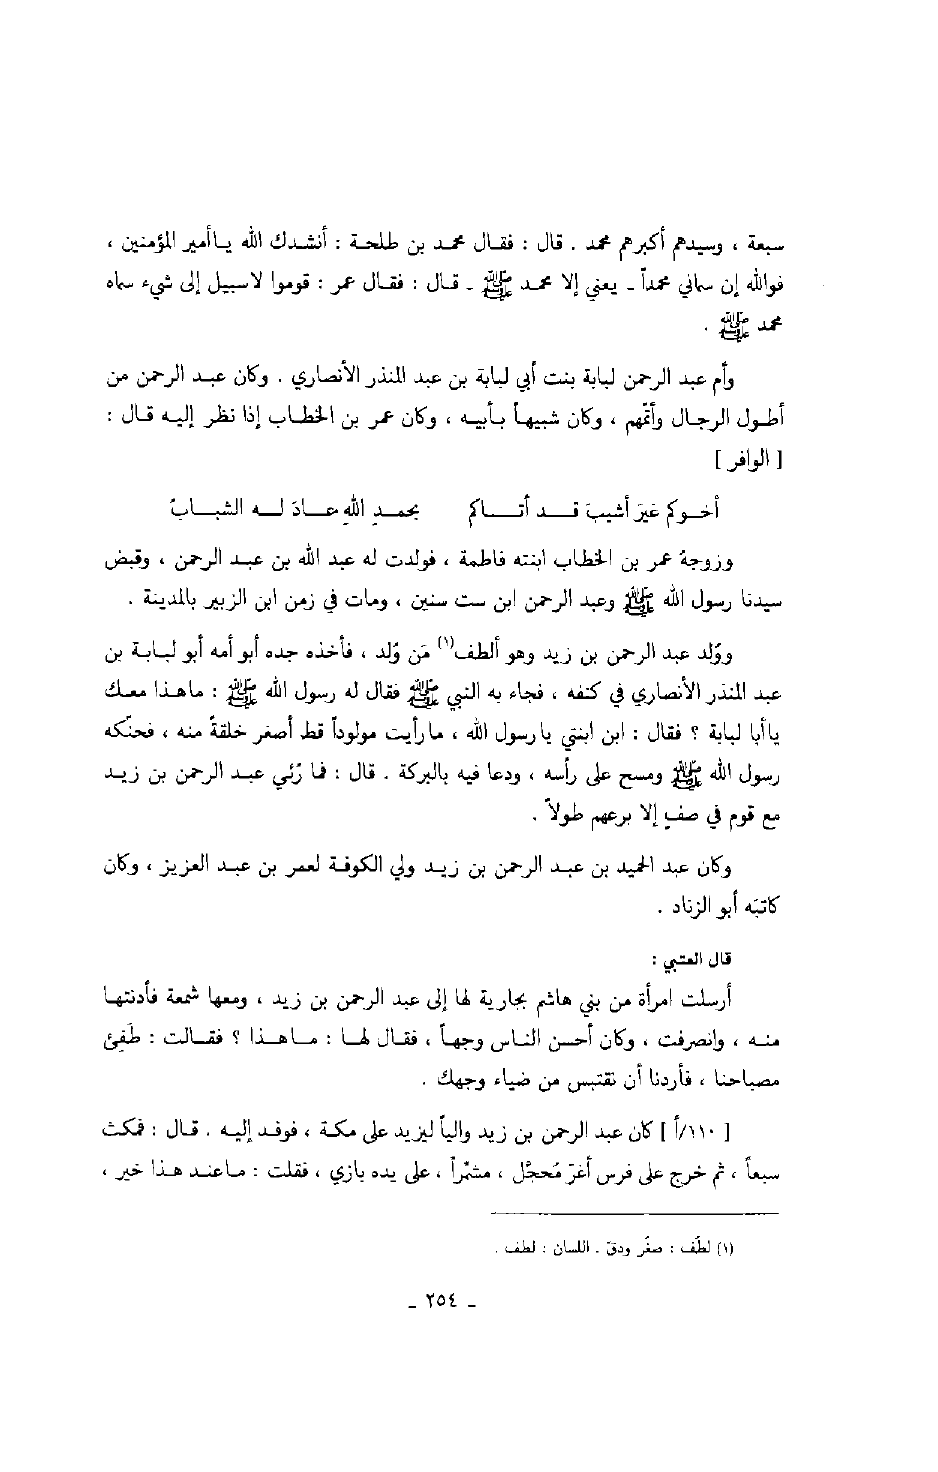 سبعة ، وسيدهم أكبرهم محمد . قال : فقـال محمـد بن طلحـة : أنشـدك الله يـاأمير المؤمنين ،
فوالله إن سماني محمداً ـ يعني إلا محمـد ﷺ ـ قـال : فقـال عمر : قوموا لاسبيل إلى شيء سماه
محمد ﷺ .
وأم عبد الرحمن لبابة بنت أبي لبابة بن عبد المنذر الأنصاري . وكان عبـد الرحمن من
أطـول الرجـال وأتمّهم ، وكان شبيهـاً بـأبيـه ، وكان عمر بن الخطـاب إذا نظر إليـه قـال :
[ الوافر ]
أخـوكم غيرَ أشيبَ قـد أتـاكم بحمـدِ اللهِ عـادَ لـه الشبـابُ
وزوجهُ عمر بن الخطاب ابنته فاطمة ، فولدت له عبد الله بن عبـد الرحمن ، وقبض
سيدنا رسول الله ﷺ وعبد الرحمن ابن ست سنين ، ومات في زمن ابن الزبير بالمدينة .
ووُلد عبد الرحمن بن زيد وهو ألطف(١) مَن وُلد ، فأخذه جده أبو أمه أبو لبـابـة بن
عبد المنذر الأنصاري في كنفه ، فجاء به النبي ﷺ فقال له رسول الله ﷺ : ماهذا معـك
ياأبا لبابة ؟ فقال : ابن ابنتي يارسول الله ، مارأيت مولوداً قط أصغر خلقةً منه ، فحنّكه
رسول الله ﷺ ومسح على رأسه ، ودعا فيه بالبركة . قال : فما رُئي عبـد الرحمن بن زيـد
مع قوم في صفٍ إلا برعهم طولاً .
وكان عبد الحميد بن عبـد الرحمن بن زيـد ولي الكوفـة لعمر بن عبـد العزيز ، وكان
كاتبَه أبو الزناد .
قال العتبي :
أرسلت امرأة من بني هاشم بجارية لها إلى عبد الرحمن بن زيد ، ومعها شمعة فأدنتها
منـه ، وانصرفت ، وكان أحسن النـاس وجهـاً ، فقـال لهـا : مـاهـذا ؟ فقـالت : طَفِئ
مصباحنا ، فأردنا أن نقتبس من ضياء وجهك .
[ ١١٠/أ ] كان عبد الرحمن بن زيد والياً ليزيد على مكة ، فوفـد إليـه . قـال : فمكث
سبعاً ، ثم خرج على فرس أغرّ مُحجَّل ، مشمِّراً ، على يده بازي ، فقلت : مـاعنـد هـذا خير ،
(١) لطُف : صغُر ودق . اللسان : لطف .
ـ ٢٥٤ ـ